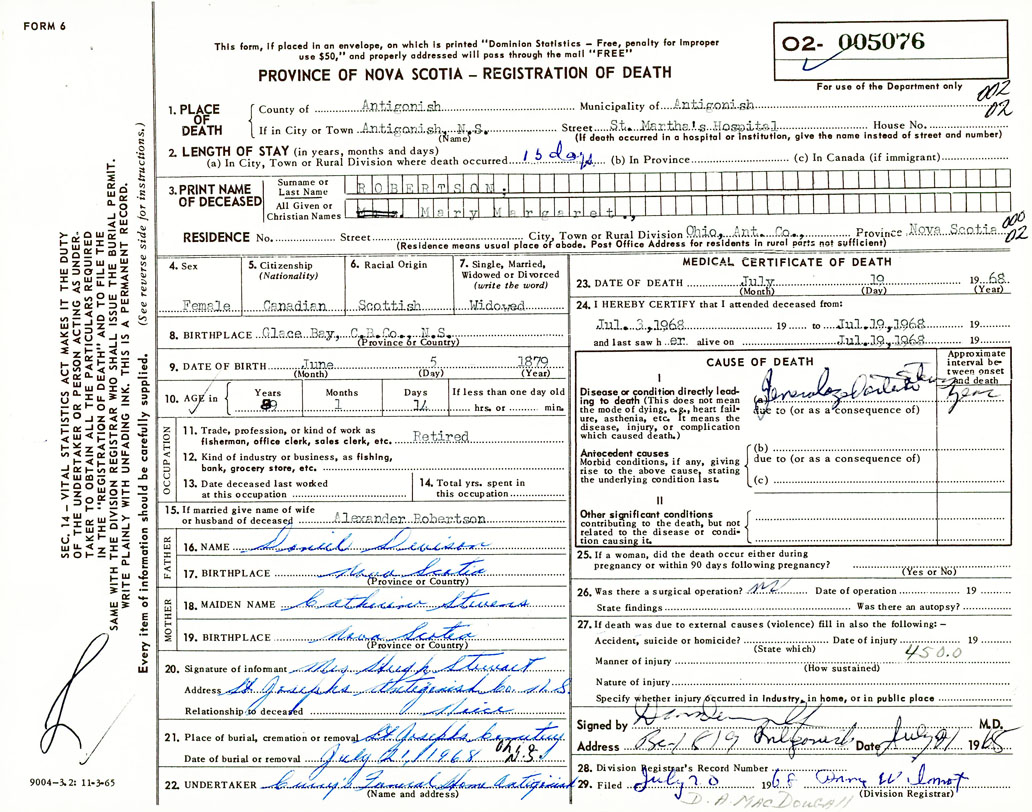 FORM 6
This form, if placed in an envelope, on which is printed "Dominion Statistics – Free, penalty for improper
use $50," and properly addressed will pass through the mail "FREE"
PROVINCE OF NOVA SCOTIA – REGISTRATION OF DEATH
02- 005076
For use of the Department only
002
02
1. PLACE OF DEATH
County of Antigonish Municipality of Antigonish
If in City or Town Antigonish, N.S. Street St. Martha's Hospital House No.
(Name) (If death occurred in a hospital or institution, give the name instead of street and number)
2. LENGTH OF STAY (in years, months and days)
(a) In City, Town or Rural Division where death occurred 15 days (b) In Province (c) In Canada (if immigrant)
3. PRINT NAME OF DECEASED
Surname or Last Name ROBERTSON:
All Given or Christian Names Mary Margaret.,
000
02
RESIDENCE No. Street City, Town or Rural Division Ohio, Ant. Co., Province Nova Scotia
(Residence means usual place of abode. Post Office Address for residents in rural parts not sufficient)
4. Sex Female
5. Citizenship (Nationality) Canadian
6. Racial Origin Scottish
7. Single, Married, Widowed or Divorced (write the word) Widowed
8. BIRTHPLACE Glace Bay, C.B.Co., N.S.
(Province or Country)
9. DATE OF BIRTH June 5 1879
(Month) (Day) (Year)
10. AGE in Years 89 Months 1 Days 14 If less than one day old hrs. or min.
OCCUPATION
11. Trade, profession, or kind of work as
fisherman, office clerk, sales clerk, etc. Retired
12. Kind of industry or business, as fishing,
bank, grocery store, etc.
13. Date deceased last worked
at this occupation
14. Total yrs. spent in
this occupation
15. If married give name of wife
or husband of deceased Alexander Robertson
FATHER
16. NAME Daniel
17. BIRTHPLACE Nova Scotia
(Province or Country)
MOTHER
18. MAIDEN NAME Catherine Stevens
19. BIRTHPLACE Nova Scotia
(Province or Country)
20. Signature of informant Mrs Hugh Stewart
Address St Josephs Antigonish Co. N.S.
Relationship to deceased Niece
21. Place of burial, cremation or removal St Josephs Cemetery
Date of burial or removal July 21/1968 N.S.
22. UNDERTAKER Funeral Home Antigonish
(Name and address)
MEDICAL CERTIFICATE OF DEATH
23. DATE OF DEATH July 19 1968
(Month) (Day) (Year)
24. I HEREBY CERTIFY that I attended deceased from:
Jul. 3,1968 19 to Jul.19,1968 19
and last saw her alive on Jul.19,1968 19
CAUSE OF DEATH
Approximate interval between onset and death
I
Disease or condition directly leading to death (This does not mean the mode of dying, e.g., heart failure, asthenia, etc. It means the disease, injury, or complication which caused death.)
(a)
due to (or as a consequence of)
Antecedent causes
Morbid conditions, if any, giving rise to the above cause, stating the underlying condition last.
(b)
due to (or as a consequence of)
(c)
II
Other significant conditions
contributing to the death, but not related to the disease or condition causing it.
25. If a woman, did the death occur either during
pregnancy or within 90 days following pregnancy?
(Yes or No)
26. Was there a surgical operation? no Date of operation 19
State findings Was there an autopsy?
27. If death was due to external causes (violence) fill in also the following: –
Accident, suicide or homicide? Date of injury 19
(State which) 450.0
Manner of injury
(How sustained)
Nature of injury
Specify whether injury occurred in Industry, in home, or in public place
Signed by M.D.
Address Antigonish Date July 1968
28. Division Registrar's Record Number
29. Filed July 20 1968
(Division Registrar)
D. A. MacDougall
SEC. 14 – VITAL STATISTICS ACT MAKES IT THE DUTY
OF THE UNDERTAKER OR PERSON ACTING AS UNDER-
TAKER TO OBTAIN ALL THE PARTICULARS REQUIRED
IN THE "REGISTRATION OF DEATH" AND TO FILE THE
SAME WITH THE DIVISION REGISTRAR WHO SHALL ISSUE THE BURIAL PERMIT.
WRITE PLAINLY WITH UNFADING INK. THIS IS A PERMANENT RECORD.
Every item of information should be carefully supplied. (See reverse side for instructions.)
9004-3.2: 11-3-65